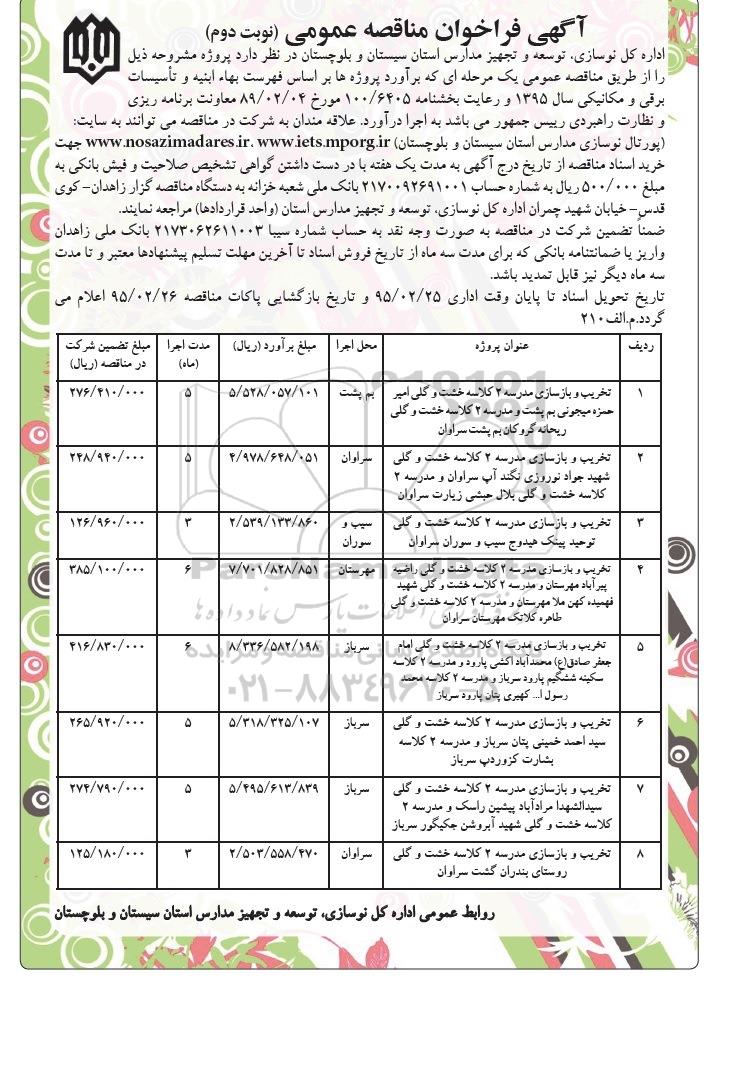 آگهی فراخوان مناقصه عمومی (نوبت دوم)
اداره کل نوسازی، توسعه و تجهیز مدارس استان سیستان و بلوچستان در نظر دارد پروژه مشروحه ذیل
را از طریق مناقصه عمومی یک مرحله ای که برآورد پروژه ها بر اساس فهرست بهاء ابنیه و تأسیسات
برقی و مکانیکی سال ۱۳۹۵ و رعایت بخشنامه ۱۰۰/۶۴۰۵ مورخ ۸۹/۰۲/۰۴ معاونت برنامه ریزی
و نظارت راهبردی رییس جمهور می باشد به اجرا درآورد. علاقه مندان به شرکت در مناقصه می توانند به سایت:
(پورتال نوسازی مدارس استان سیستان و بلوچستان) www.nosazimadares.ir. www.iets.mporg.ir جهت
خرید اسناد مناقصه از تاریخ درج آگهی به مدت یک هفته با در دست داشتن گواهی تشخیص صلاحیت و فیش بانکی به
مبلغ ۵۰۰/۰۰۰ ریال به شماره حساب ۲۱۷۰۰۹۲۶۹۱۰۰۱ بانک ملی شعبه خزانه به دستگاه مناقصه گزار زاهدان- کوی
قدس- خیابان شهید چمران اداره کل نوسازی، توسعه و تجهیز مدارس استان (واحد قراردادها) مراجعه نمایند.
ضمناً تضمین شرکت در مناقصه به صورت وجه نقد به حساب شماره سیبا ۲۱۷۳۰۶۲۶۱۱۰۰۳ بانک ملی زاهدان
واریز یا ضمانتنامه بانکی که برای مدت سه ماه از تاریخ فروش اسناد تا آخرین مهلت تسلیم پیشنهادها معتبر و تا مدت
سه ماه دیگر نیز قابل تمدید باشد.
تاریخ تحویل اسناد تا پایان وقت اداری ۹۵/۰۲/۲۵ و تاریخ بازگشایی پاکات مناقصه ۹۵/۰۲/۲۶ اعلام می
گردد.م.الف۲۱۰
ردیف عنوان پروژه محل اجرا مبلغ برآورد (ریال) مدت اجرا مبلغ تضمین شرکت
(ماه) در مناقصه (ریال)
۱ تخریب و بازسازی مدرسه ۲ کلاسه خشت و گلی امیر بم پشت ۵/۵۲۸/۰۵۷/۱۰۱ ۵ ۲۷۶/۴۱۰/۰۰۰
حمزه میجونی بم پشت و مدرسه ۲ کلاسه خشت و گلی
ریحانه گروکان بم پشت سراوان
۲ تخریب و بازسازی مدرسه ۲ کلاسه خشت و گلی سراوان ۴/۹۷۸/۶۴۸/۰۵۱ ۵ ۲۴۸/۹۴۰/۰۰۰
شهید جواد نوروزی نگند آپ سراوان و مدرسه ۲
کلاسه خشت و گلی بلال حبشی زیارت سراوان
۳ تخریب و بازسازی مدرسه ۲ کلاسه خشت و گلی سیب و ۲/۵۳۹/۱۳۳/۸۶۰ ۳ ۱۲۶/۹۶۰/۰۰۰
توحید پینک هیدوج سیب و سوران سراوان سوران
۴ تخریب و بازسازی مدرسه ۲ کلاسه خشت و گلی راضیه مهرستان ۷/۷۰۱/۸۲۸/۸۵۱ ۶ ۳۸۵/۱۰۰/۰۰۰
پیرآباد مهرستان و مدرسه ۲ کلاسه خشت و گلی شهید
فهمیده کهن ملا مهرستان و مدرسه ۲ کلاسه خشت و گلی
طاهره کلاتک مهرستان سراوان
۵ تخریب و بازسازی مدرسه ۲ کلاسه خشت و گلی امام سرباز ۸/۳۳۶/۵۸۲/۱۹۸ ۶ ۴۱۶/۸۳۰/۰۰۰
جعفر صادق(ع) محمدآباد اکشی پارود و مدرسه ۲ کلاسه
سکینه ششگیم پارود سرباز و مدرسه ۲ کلاسه محمد
رسول ا... کهیری پتان پارود سرباز
۶ تخریب و بازسازی مدرسه ۲ کلاسه خشت و گلی سرباز ۵/۳۱۸/۳۲۵/۱۰۷ ۵ ۲۶۵/۹۲۰/۰۰۰
سید احمد خمینی پتان سرباز و مدرسه ۲ کلاسه
بشارت کزوردپ سرباز
۷ تخریب و بازسازی مدرسه ۲ کلاسه خشت و گلی سرباز ۵/۴۹۵/۶۱۳/۸۳۹ ۵ ۲۷۴/۷۹۰/۰۰۰
سیدالشهدا مرادآباد پیشین راسک و مدرسه ۲
کلاسه خشت و گلی شهید آبروشن جکیگور سرباز
۸ تخریب و بازسازی مدرسه ۲ کلاسه خشت و گلی سراوان ۲/۵۰۳/۵۵۸/۴۷۰ ۳ ۱۲۵/۱۸۰/۰۰۰
روستای بندران گشت سراوان
روابط عمومی اداره کل نوسازی، توسعه و تجهیز مدارس استان سیستان و بلوچستان